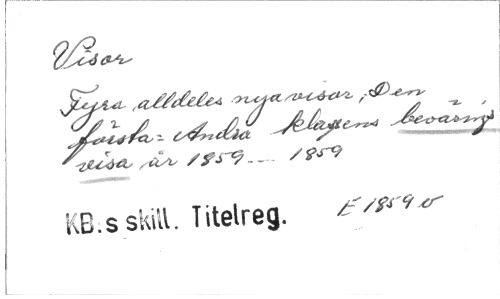 Visor
Fyra alldeles nya visor, Den
första = Andra klassens bevärings
visa år 1859 --- 1859
KB.s skill. Titelreg. E 1859 v